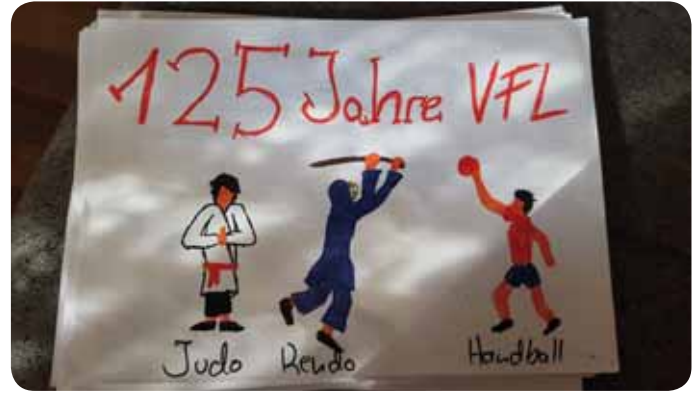 125 Jahre VFL
Judo Kendo Handball